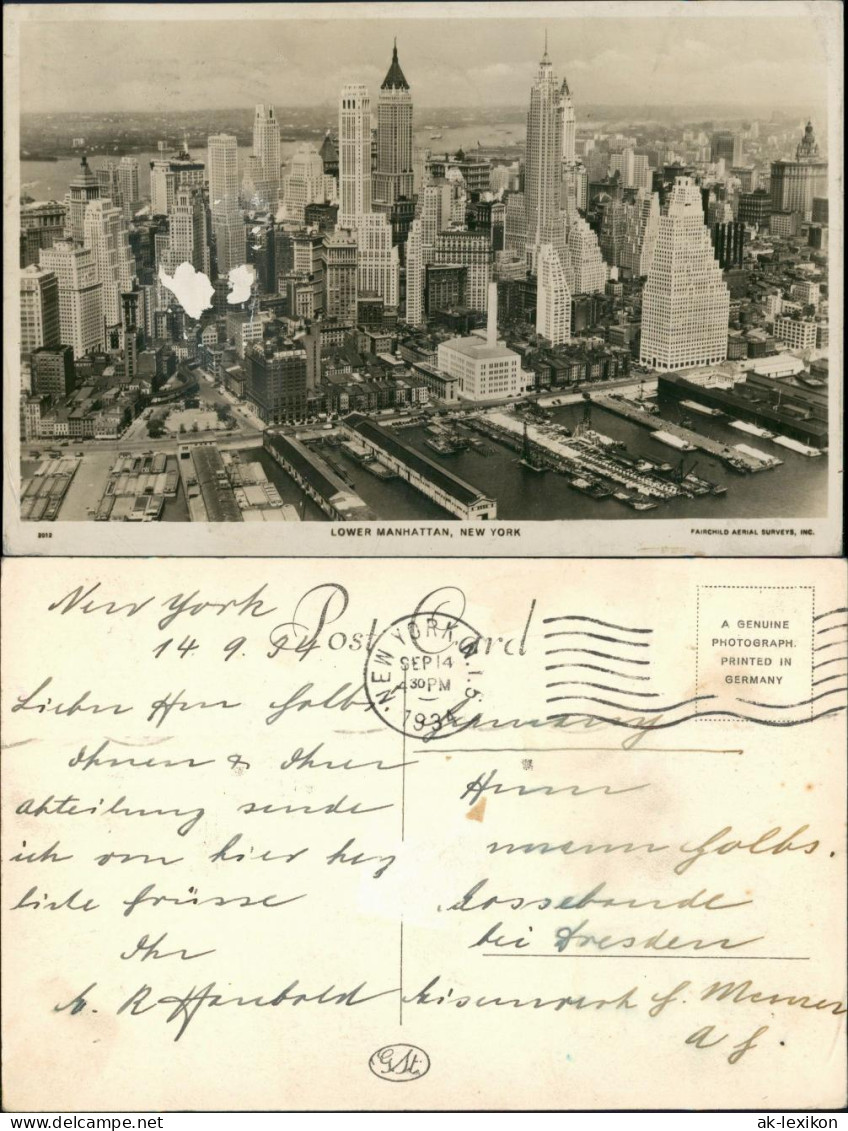 2012
LOWER MANHATTAN, NEW YORK
FAIRCHILD AERIAL SURVEYS, INC.
New York
14.9.34
Post Card
NEW YORK, N.Y.
SEP 14
4 30 PM
1934
A GENUINE
PHOTOGRAPH.
PRINTED IN
GERMANY
Lieber Herr Golbs
Ihnen & Ihrer
abteilung sende
ich von hier herz
liche Grüsse
Ihr
R Haubold
Germany
Herrn
Golbs.
Cossebaude
bei Dresden
Eisenwerk G. Meurer
A G.
GSti
delcampe.net
ak-lexikon